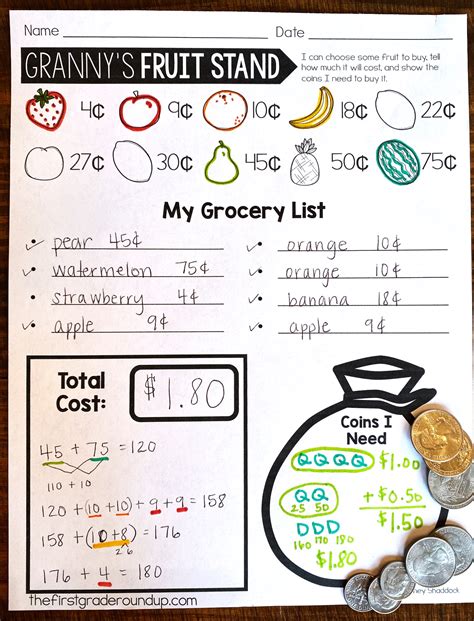 Name Date
GRANNY'S FRUIT STAND
I can choose some fruit to buy, tell
how much it will cost, and show the
coins I need to buy it.
4¢ 9¢ 10¢ 18¢ 22¢
27¢ 30¢ 45¢ 50¢ 75¢
My Grocery List
✓ pear 45¢
✓ watermelon 75¢
• strawberry 4¢
✓ apple 9¢
✓ orange 10¢
✓ orange 10¢
✓ banana 18¢
✓ apple 9¢
Total
Cost:
$1.80
45 + 75 = 120
110 + 10
120 + (10 + 10) + 9 + 9 = 158
158 + (10 + 8) = 176
2 6
176 + 4 = 180
Coins I
Need
Q Q Q Q $1.00
Q Q + $0.50
25 50
$1.50
D D D
160 170 180
$1.80
ney Shaddock
thefirstgraderoundup.com